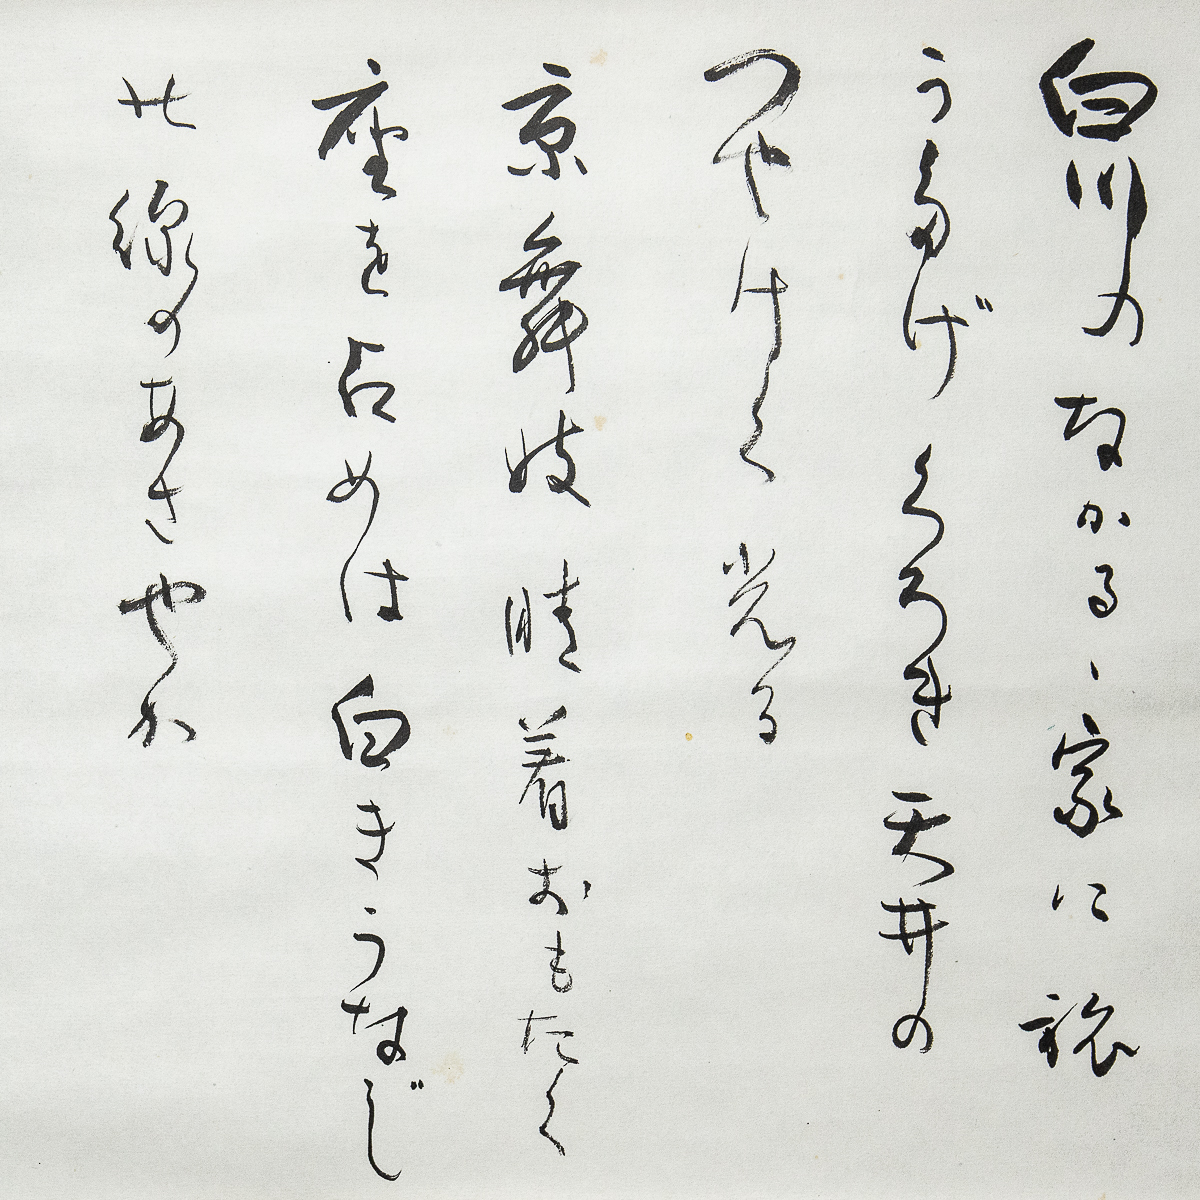 白川のなかるゝ家に旅
うたげくろき天井の
つやけく光る
京舞妓晴着おもたく
座を占めは白きうなじ
線のあさやか